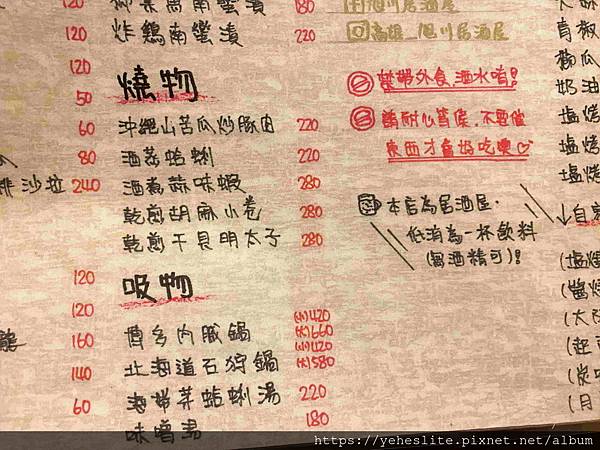 120
120
120
50
60
80
排 沙拉 240
120
120
160
140
60
南蠻漬 180
炸鶏南蠻漬 220
燒物
沖繩山苦瓜炒豚肉 220
酒蒸蛤蜊 220
酒煮蒜味蝦 280
乾煎胡麻小卷 280
乾煎干貝明太子 280
吸物
博多內臟鍋 (小)420
(大)660
北海道石狩鍋 (小)420
(大)580
海帶芽蛤蜊湯 220
味噌湯 180
旭川居酒屋
高雄 旭川居酒屋
禁帶外食,酒水唷!
請耐心等候,不要催
東西才會好吃噢♡
本店為居酒屋.
低消為一杯飲料
(含酒精可)!
青椒
奶油
塩烤
塩烤
塩烤
↓自家
(塩燒
(醬燒
(大阪
(起司
(炭
(月
https://yeheslite.pixnet.net/album